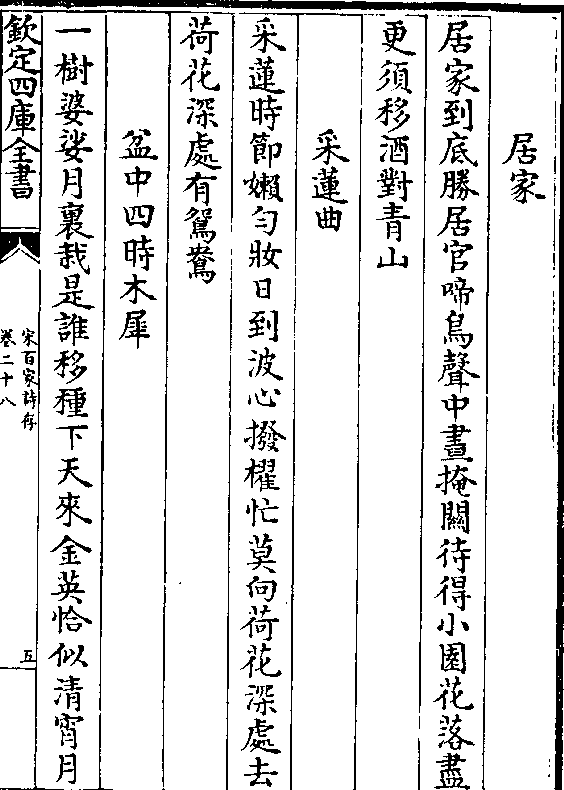 居家
居家到底勝居官啼鳥聲中晝掩關待得小園花落盡
更須移酒對青山
采蓮曲
采蓮時節嬾勻妝日到波心撥櫂忙莫向荷花深處去
荷花深處有鴛鴦
盆中四時木犀
一樹婆娑月裏栽是誰移種下天來金英恰似清宵月
欽定四庫全書
宋百家詩存
卷二十八
五